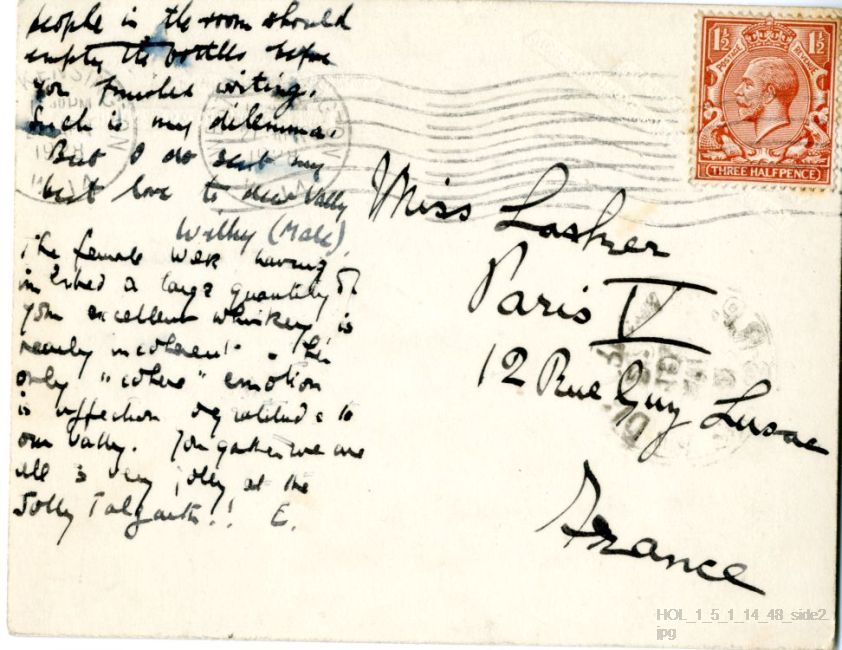 people in the room should
empty the bottles before
you finished writing.
Such is my dilemma.
But I do send my
best love to dear Vally
Wilky (Male)
The female Wek having
imbibed a large quantity of
your excellent whiskey is
nearly incoherent. The
only "cohere" emotion
is affection & gratitude to
our Vally. You gather we are
all is very jolly at the
Jolly Talgarth!! E.
1½ 1½
POSTAGE REVENUE
THREE HALFPENCE
Miss Lasker
Paris V
12 Rue Guy Lusac
France
HOL_1_5_1_14_48_side2.
jpg